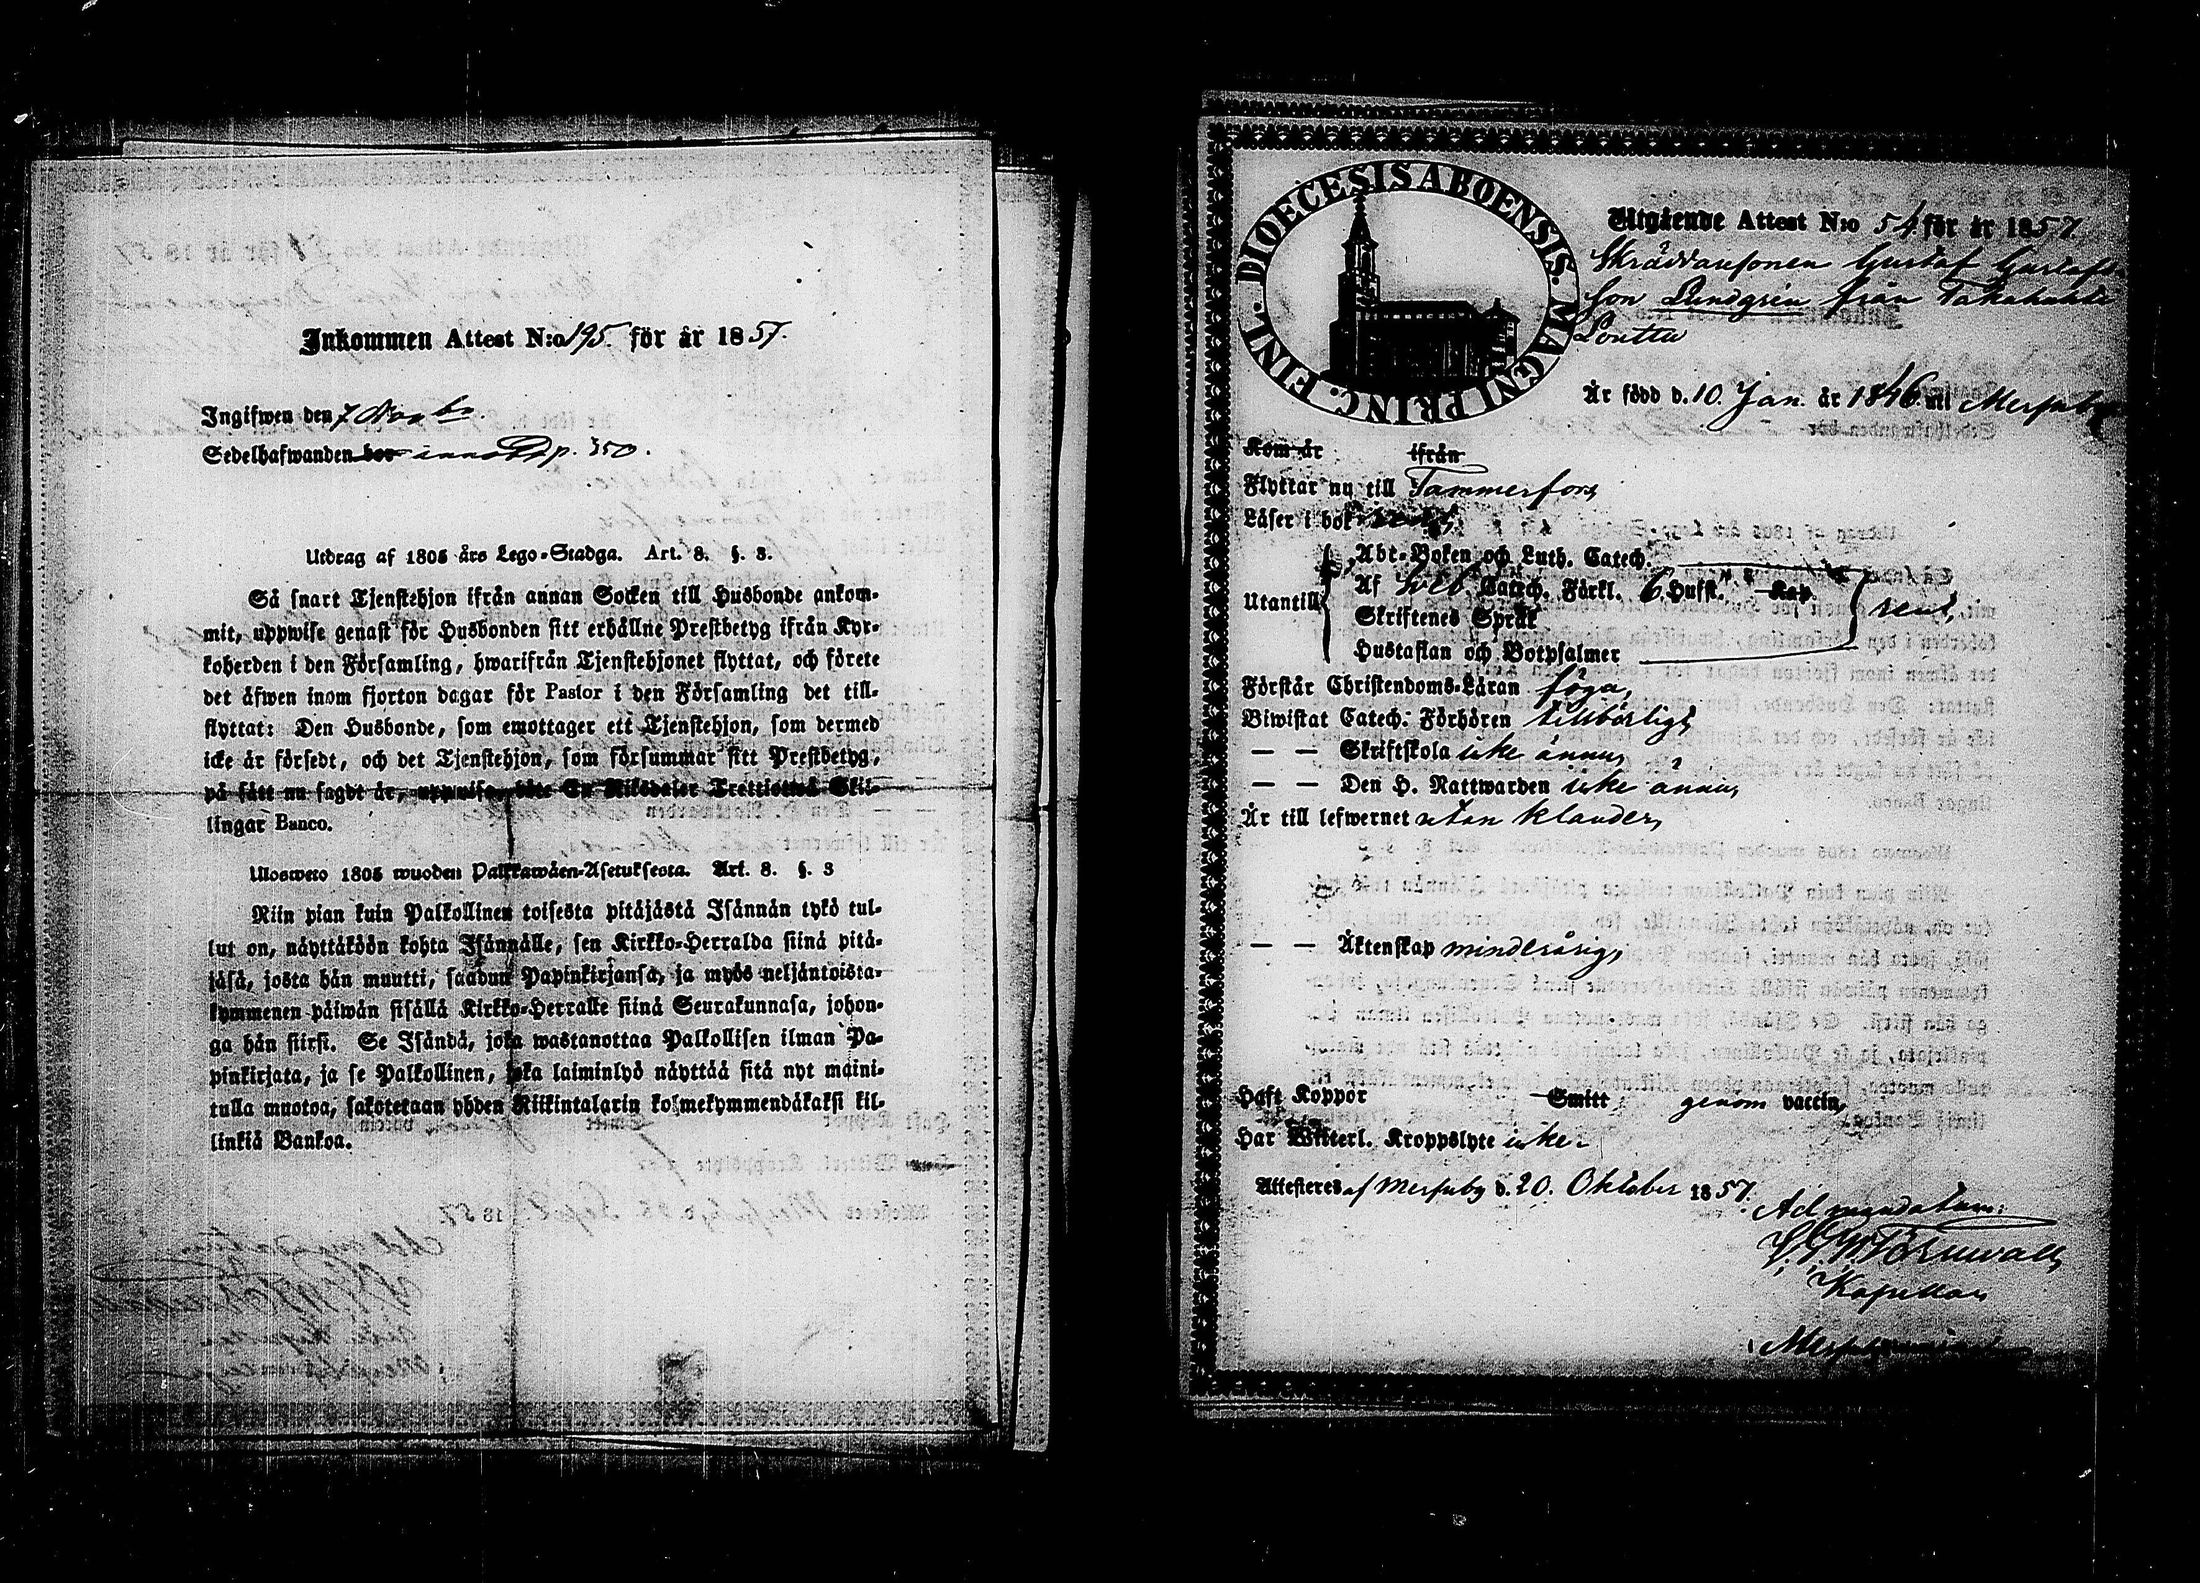 Inkommen Attest N:o 195. för år 1857.
Ingifwen den 7 Novbr.
Sedelhafwanden bor inno p. 350.
Utdrag af 1805 års Lego-Stadga. Art. 8. §. 3.
Så snart Tjenstehjon ifrån annan Socken till Husbonde ankom-
mit, uppwise genast för Husbonden sitt erhållne Prestbetyg ifrån Kyr-
koherden i den Församling, hwarifrån Tjenstehjonet flyttat, och förete
det äfwen inom fjorton dagar för Pastor i den Församling det till-
flyttat: Den Husbonde, som emottager ett Tjenstehjon, som dermed
icke är försedt, och det Tjenstehjon, som försummar sitt Prestbetyg,
på sätt nu sagdt är, uppwisa, böte En Riksdaler Trettiotwå Skil-
lingar Banco.
Ulosweto 1805 wuoden Palkkawäen-Asetuksesta. Art. 8. §. 3
Niin pian kuin Palkollinen toisesta pitäjästä Isännän tykö tul-
lut on, näyttäköön kohta Isännälle, sen Kirkko-Herralda siinä pitä-
jäsä, josta hän muutti, saadun Papinkirjansa, ja myös neljäntoista-
kymmenen päiwän sisällä Kirkko-Herralle siinä Seurakunnasa, johon-
ga hän siirsi. Se Isändä, joka wastanottaa Palkollisen ilman Pa-
pinkirjata, ja se Palkollinen, joka laiminlyö näyttää sitä nyt maini-
tulla muotoa, sakotetaan yhden Riikintalarin kolmekymmendäkaksi kil-
linkiä Bankoa.
DIOECESIS ABOENSIS. MAGNI PRINC. FINL.
Utgående Attest N:o 54 för år 1857
Skräddaresonen Gustaf Gustafs-
son Lundgrén från Takahuhti
Loutta
Är född d. 10 Jan. år 1846 uti Messuby
Kom år ifrån
Flyttar nu till Tammerfors,
Läser i bok rent,
Utantill
Abc-Boken och Luth. Catech.
Af Sveb. Catech. Förkl. 6 Hufst. Kap.
Skriftenes Språk
Hustaflan och Botpsalmer
rent,
Förstår Christendoms-Läran föga,
Biwistat Catech. Förhören tillbörligt,
— — Skriftskola icke ännu,
— — Den H. Nattwarden icke ännu,
Är till lefwernet utan klander,
— — Äktenskap minderårig,
Haft Koppor Smitt genom vaccin,
Har Witterl. Kroppslyte icke.
Attesteres af Messuby d. 20. Oktober 1857.
Ad mandatum:
Törnwall,
Kapellan